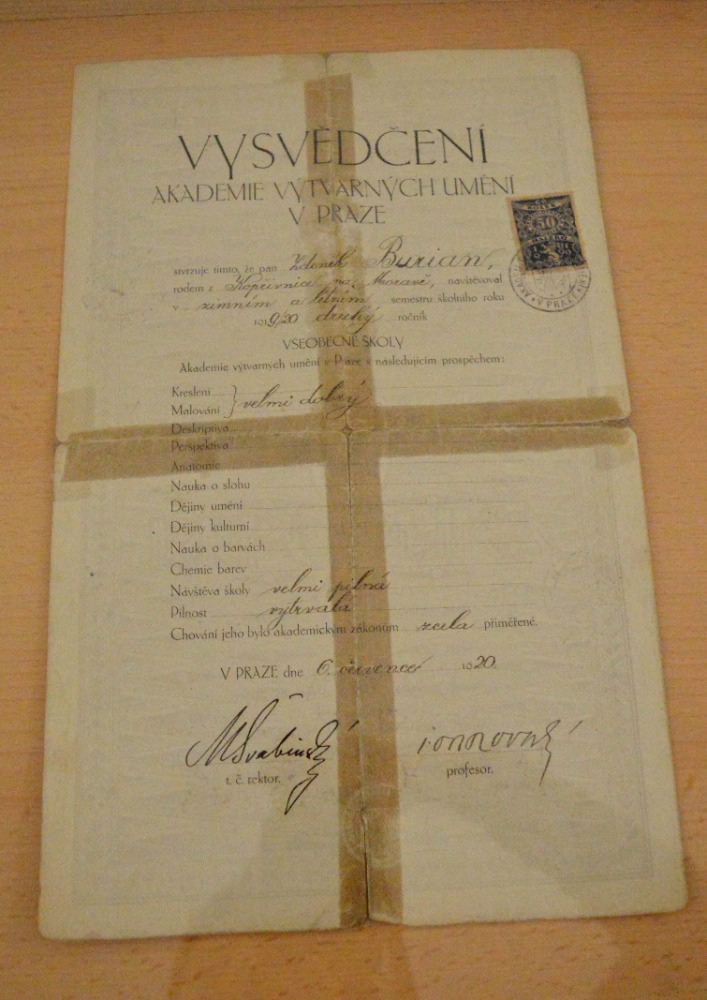 VYSVĚDČENÍ
AKADEMIE VÝTVARNÝCH UMĚNÍ
V PRAZE
stvrzuje tímto, že pan Zdeněk Burian,
rodem z Kopřivnice na Moravě, navštěvoval
v zimním a letním semestru školního roku
1919/20 druhý ročník
VŠEOBECNÉ ŠKOLY
Akademie výtvarných umění v Praze s následujícím prospěchem:
Kreslení
Malování } velmi dobrý
Deskriptiva
Perspektiva
Anatomie
Nauka o slohu
Dějiny umění
Dějiny kulturní
Nauka o barvách
Chemie barev
Návštěva školy velmi pilná
Pilnost vytrvalá
Chování jeho bylo akademickým zákonům zcela přiměřené.
V PRAZE dne 6. července 1920.
MŠvabinský
t. č. rektor.
profesor.
50
V PRAZE